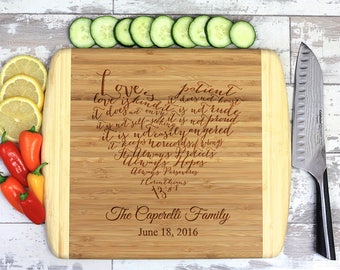 Love is patient
love is kind it does not boast
it does not envy it is not rude
it is not self-seeking is not proud
it is not easily angered
it keeps no record of wrongs
It Always Protects
Always Hopes
Always Perseveres
1 Corinthians
13
The Caperelli Family
June 18, 2016